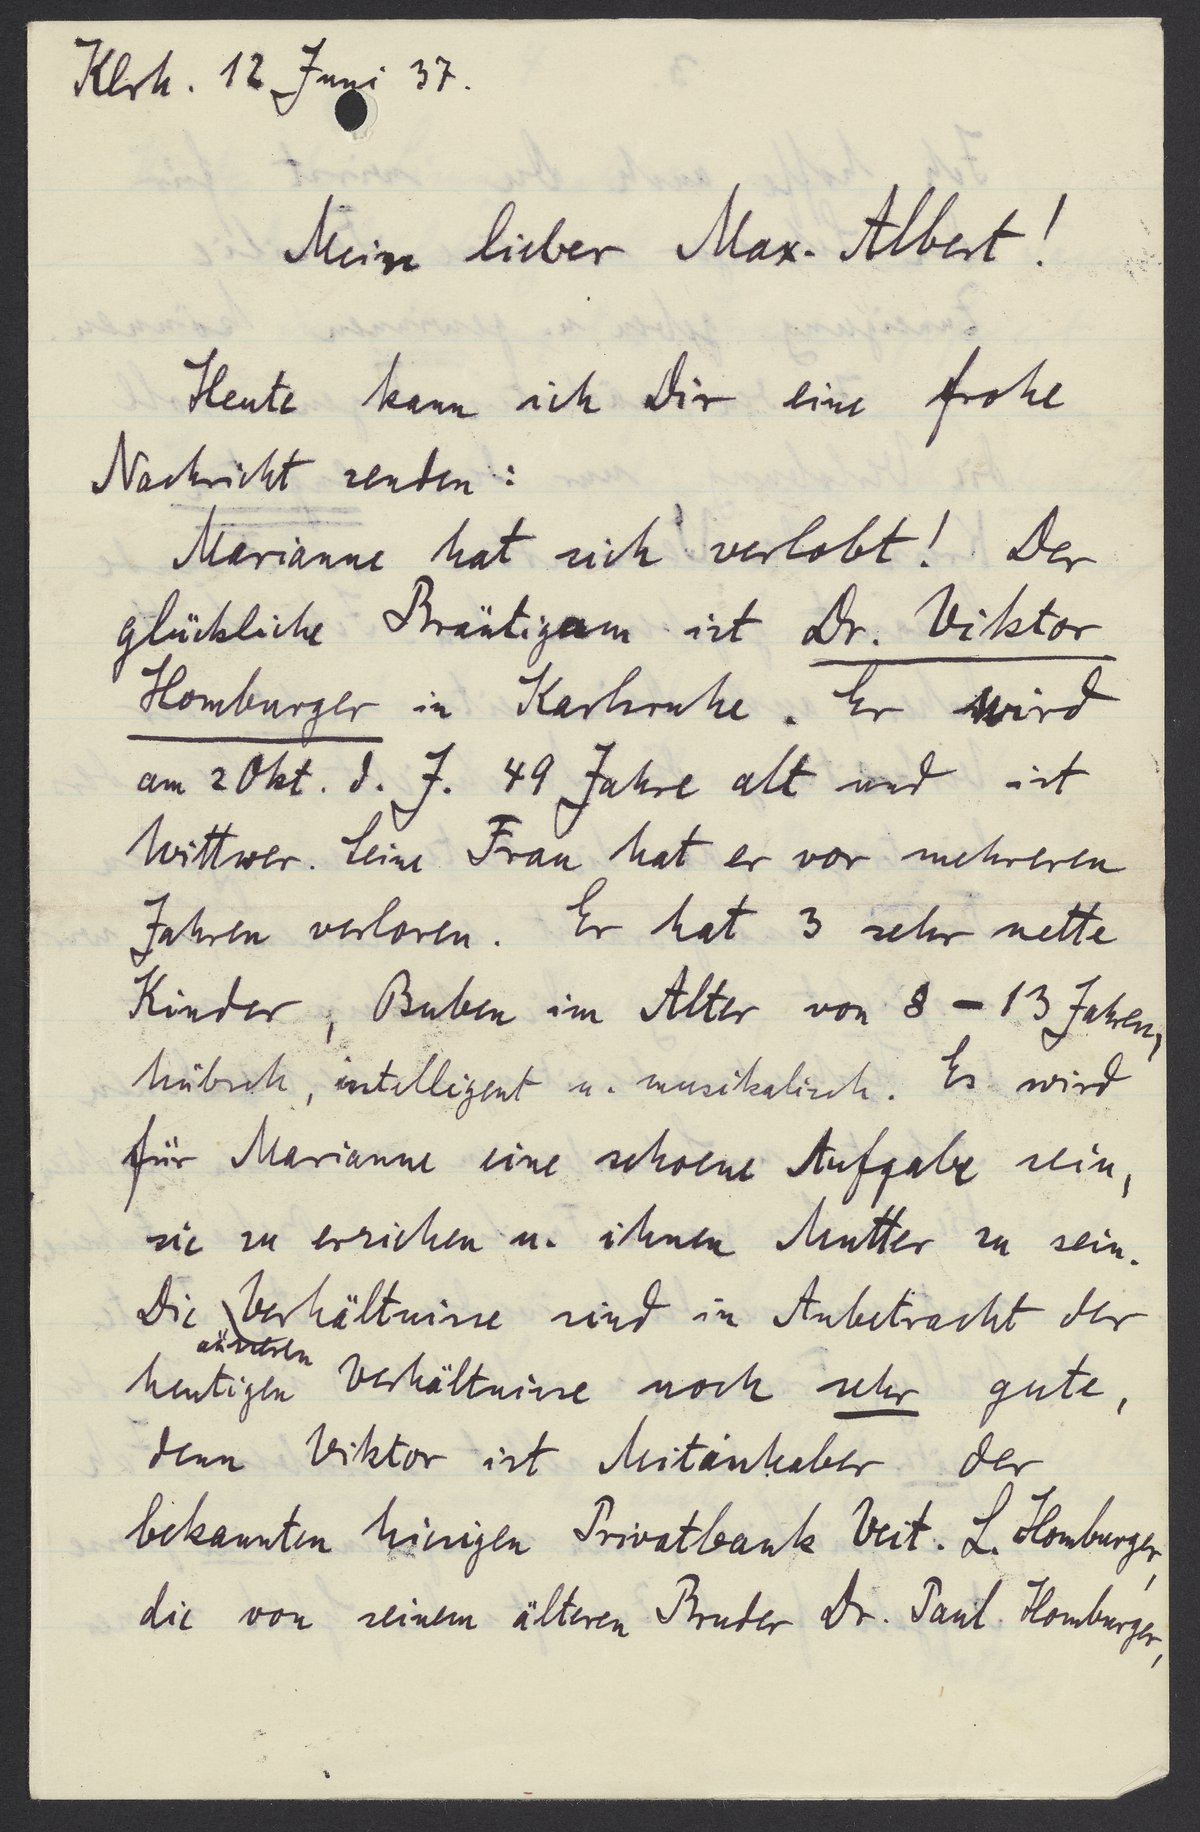 Klrh. 12 Juni 37.
Mein lieber Max-Albert!
Heute kann ich Dir eine frohe
Nachricht senden:
Marianne hat sich verlobt! Der
glückliche Bräutigam ist Dr. Viktor
Homburger in Karlsruhe. Er wird
am 2 Okt. d. J. 49 Jahre alt und ist
Wittwer. Seine Frau hat er vor mehreren
Jahren verloren. Er hat 3 sehr nette
Kinder, Buben im Alter von 8 – 13 Jahren,
hübsch, intelligent u. musikalisch. Es wird
für Marianne eine schoene Aufgabe sein,
sie zu erziehen u. ihnen Mutter zu sein.
Die äusseren Verhältnisse sind in Anbetracht der
heutigen Verhältnisse noch sehr gute,
denn Viktor ist Mitinhaber der
bekannten hiesigen Privatbank Veit. L. Homburger,
die von seinem älteren Bruder Dr. Paul Homburger,